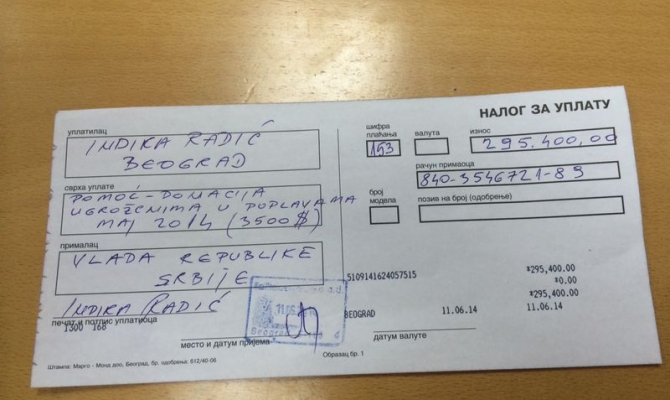 НАЛОГ ЗА УПЛАТУ
уплатилац
INDIKA RADIĆ
BEOGRAD
сврха уплате
POMOĆ - DOMACIJA
UGROŽENIMA U POPLAVAMA
MAJ 2014 (3500$)
прималац
VLADA REPUBLIKE
SRBIJE
INDIKA RADIĆ
печат и потпис уплатиоца
1300 168
место и датум пријема
шифра
плаћања
валута
износ
153
295.400,00
рачун примаоца
840-3546721-89
број
модела
позив на број (одобрење)
5109141624057515
*295,400.00
*0.00
*295,400.00
BEOGRAD
11.06.14
11.06.14
датум валуте
Образац бр. 1
Штампа: Марго - Монд доо, Београд, бр. одобрења: 612/40-06
11.06
Beograd